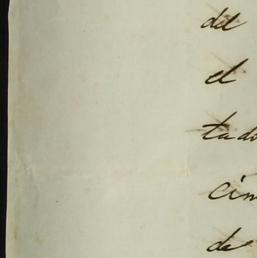 del
el
tado
cin
de